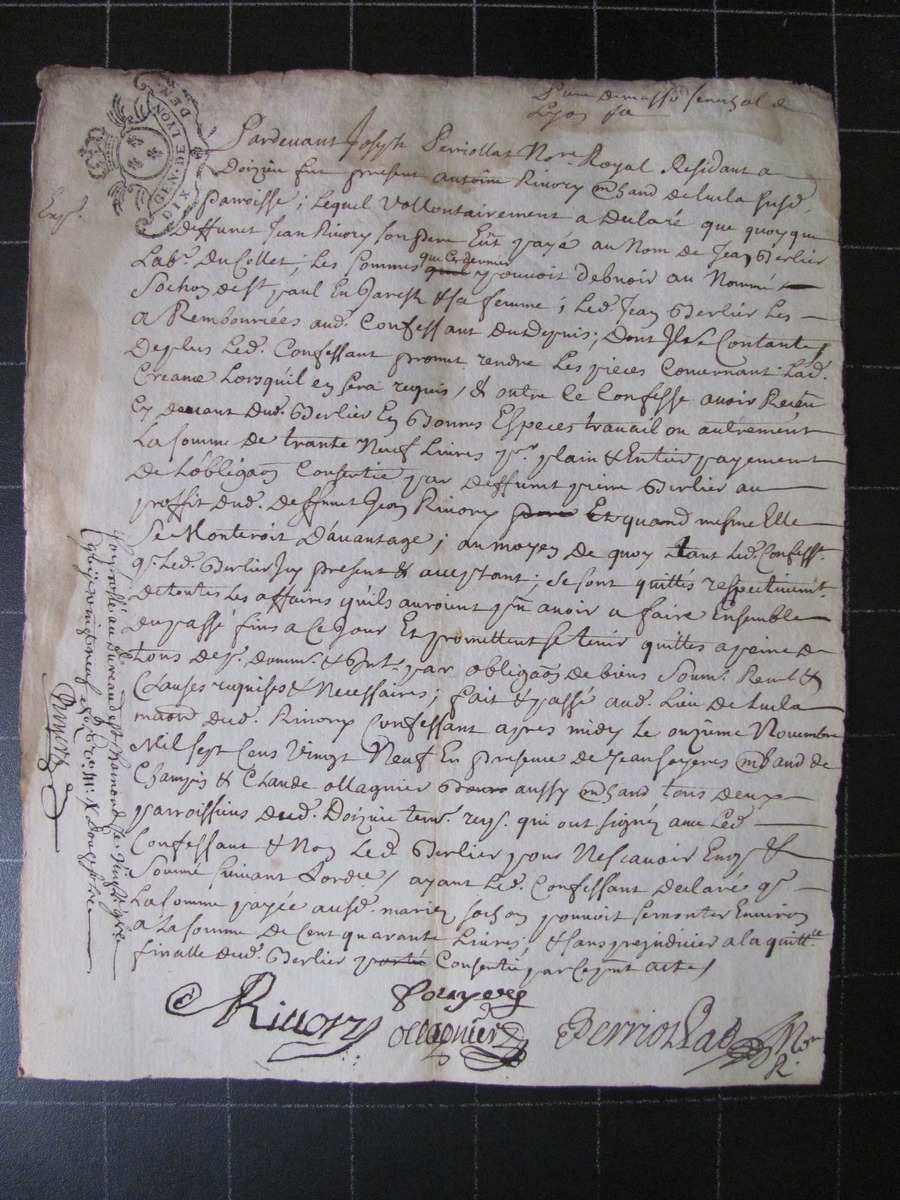 GEN. DE LYON
DIX DEN.
Lyon
Pardevant Joseph Perriollat Nore. Royal Residant a
Doizieu fut present antoine Rivory mhand de luila susd.
parroisse; Lequel Vollontairement a Declaré que quoyque
Deffunct Jean Rivory son pere Eût payé au Nom de Jean Berlier
Labr. Du Collet; Les sommes que ce dernier pouvoit Debvoir au Nommé
Sochon de St. paul En Jarest & sa femme; Led. Jean Berlier Les
a Remboursées aud. Confessant Du Depuis; Dont Il se Contante,
De plus Led. Confessant promet rendre Les pieces Concernant Lad.
Creance Lorsquil en sera requis, & outre ce Confesse avoir Receu
Cy devant dud. Berlier En Bonnes Especes travail ou autrement
La somme de trante Neuf Livres pr. plain & Entier payement
De Lobligaon Consentie par deffunct pierre Berlier au
proffit dud. deffunct Jean Rivory Et quand mesme Elle
Se Monteroit Davantage; au moyen De quoy tant Led. Confesst.
q. Led. Berlier Icy present & acceptant; se sont quittés respectivemt.
De toutes Les affaires quils auroient pu avoir a faire Ensemble
Du passé Jusqu a Ce Jour Et promettent se tenir quittes a peine de
tous dep. domm. & Int. par obligaon de biens Soum. Renon &
Clauses requises & Necessaires; fait & passé aud. Lieu de luila
maison dud. Rivory Confessant apres midy Le onzieme Novembre
Mil Sept Cens Vingt Neuf En presence de Jean fayeres mhand de
& Claude ollagnier aussy mhand tous deux
parroissiens dud. Doizieu tem. req. qui ont signé avec Led.
Confessant & Non Led. Berlier pour Ne scavoir Enquis &
Sommé suivant Lordce, ayant Led. Confessant Declaré q.
La somme payée ausd. mariez Sochon pouvoit se monter Environ
a La somme de Cent quarante Livres, & sans prejudicier a la quitt.
finalle dud. Berlier Consentie par ce pnt acte
Rivory
ollagnier
Perriollat Nore R.